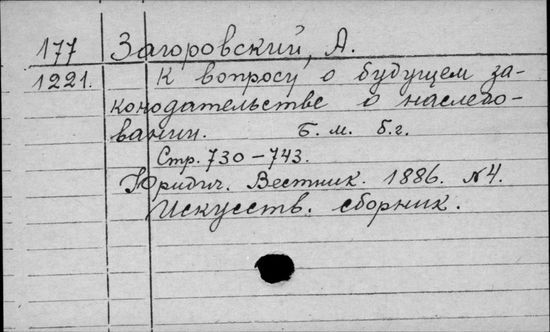 177 Загоровский, А.
1221. К вопросу о будущем за-
конодательстве о наследо-
вании. Б. м. б. г.
Стр. 730-743.
Юридич. Вестник. 1886. №4.
Искусств. сборник.